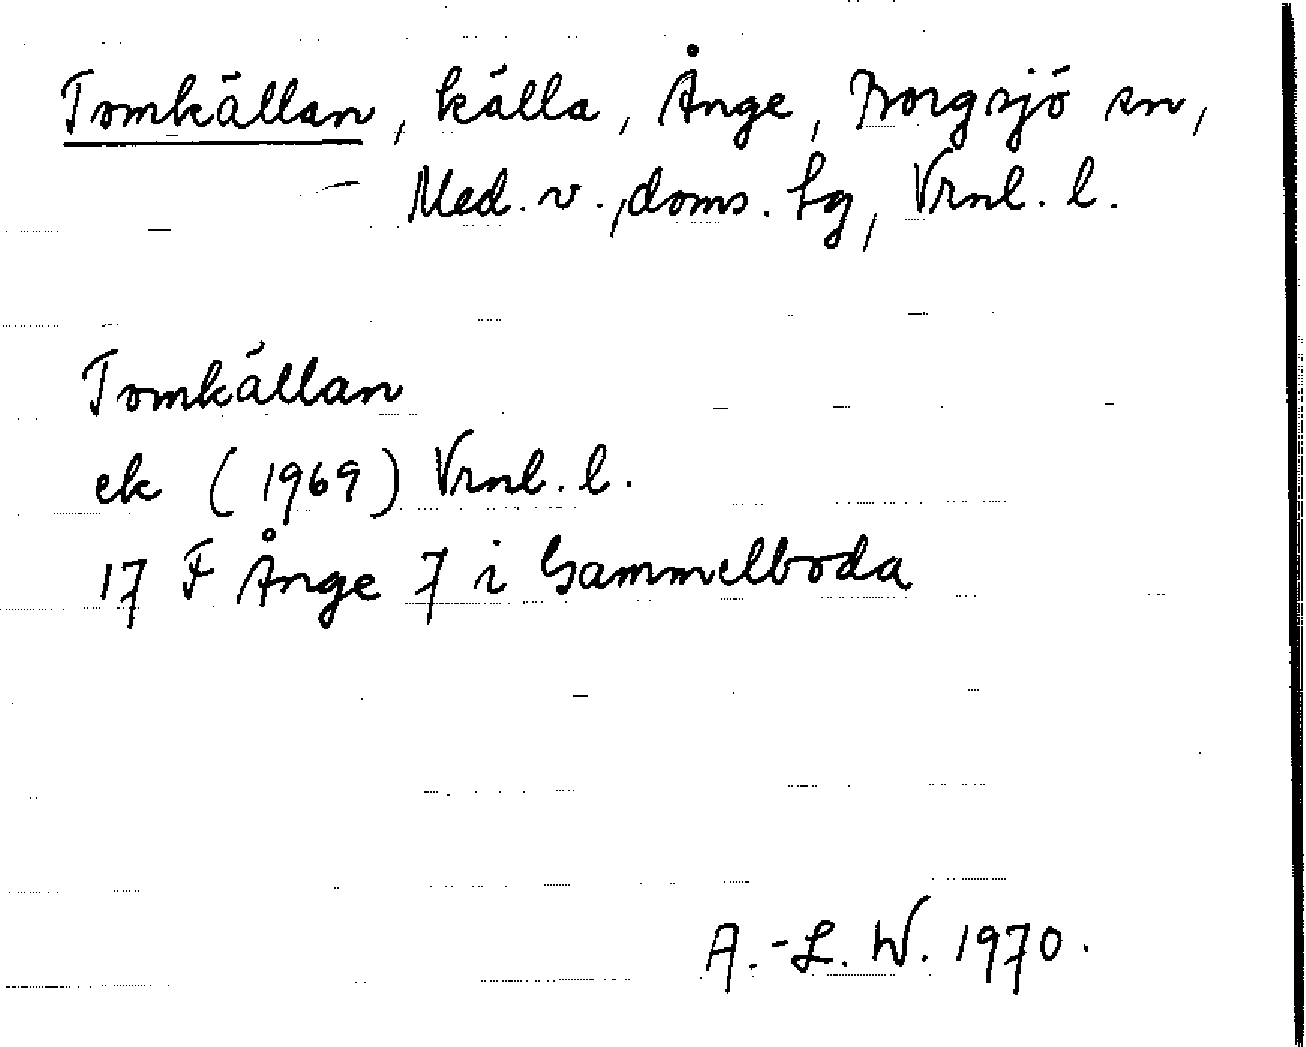 Tomkällan, källa, Ånge, Borgsjö sn,
Med. v., doms. hg, Vrnl. l.
Tomkällan
ek (1969) Vrnl. l.
17 F Ånge 7 i Gammelboda
A.-L. W. 1970.